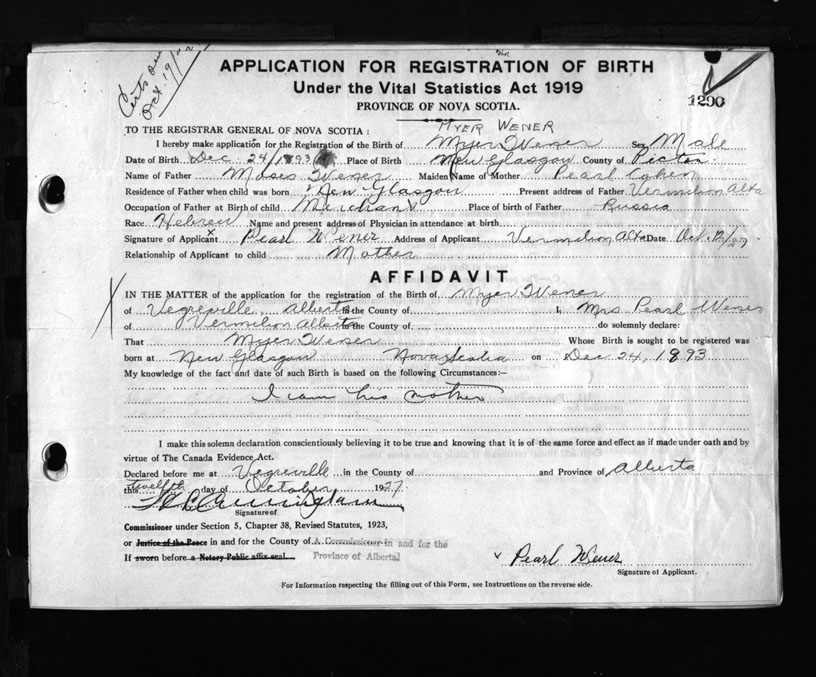 Certs
Oct 19/
APPLICATION FOR REGISTRATION OF BIRTH
Under the Vital Statistics Act 1919
PROVINCE OF NOVA SCOTIA.
1290
MYER WENER
TO THE REGISTRAR GENERAL OF NOVA SCOTIA:
I hereby make application for the Registration of the Birth of Myer Wener Sex Male
Date of Birth Dec 24/1893 Place of Birth New Glasgow County of Pictou
Name of Father Moses Wener Maiden Name of Mother Pearl Cohen
Residence of Father when child was born New Glasgow Present address of Father Vermilion Alta
Occupation of Father at Birth of child Merchant Place of birth of Father Russia
Race Hebrew Name and present address of Physician in attendance at birth
Signature of Applicant x Pearl Wener Address of Applicant Vermilion Alta Date Oct. 12/27
Relationship of Applicant to child Mother
AFFIDAVIT
IN THE MATTER of the application for the registration of the Birth of Myer Wener
of Vegreville, Alberta in the County of I, Mrs Pearl Wener
of Vermilion Alberta in the County of do solemnly declare:
That Myer Wener Whose Birth is sought to be registered was
born at New Glasgow Nova Scotia on Dec 24, 1893
My knowledge of the fact and date of such Birth is based on the following Circumstances:—
I am his mother
I make this solemn declaration conscientiously believing it to be true and knowing that it is of the same force and effect as if made under oath and by
virtue of The Canada Evidence Act.
Declared before me at Vegreville in the County of and Province of Alberta
this twelfth day of October 1927.
Cunningham
Signature of
Commissioner under Section 5, Chapter 38, Revised Statutes, 1923,
or Justice of the Peace in and for the County of A Commissioner in and for the
Province of Alberta
If sworn before a Notary Public affix seal.
v Pearl Wener
Signature of Applicant.
For Information respecting the filling out of this Form, see Instructions on the reverse side.